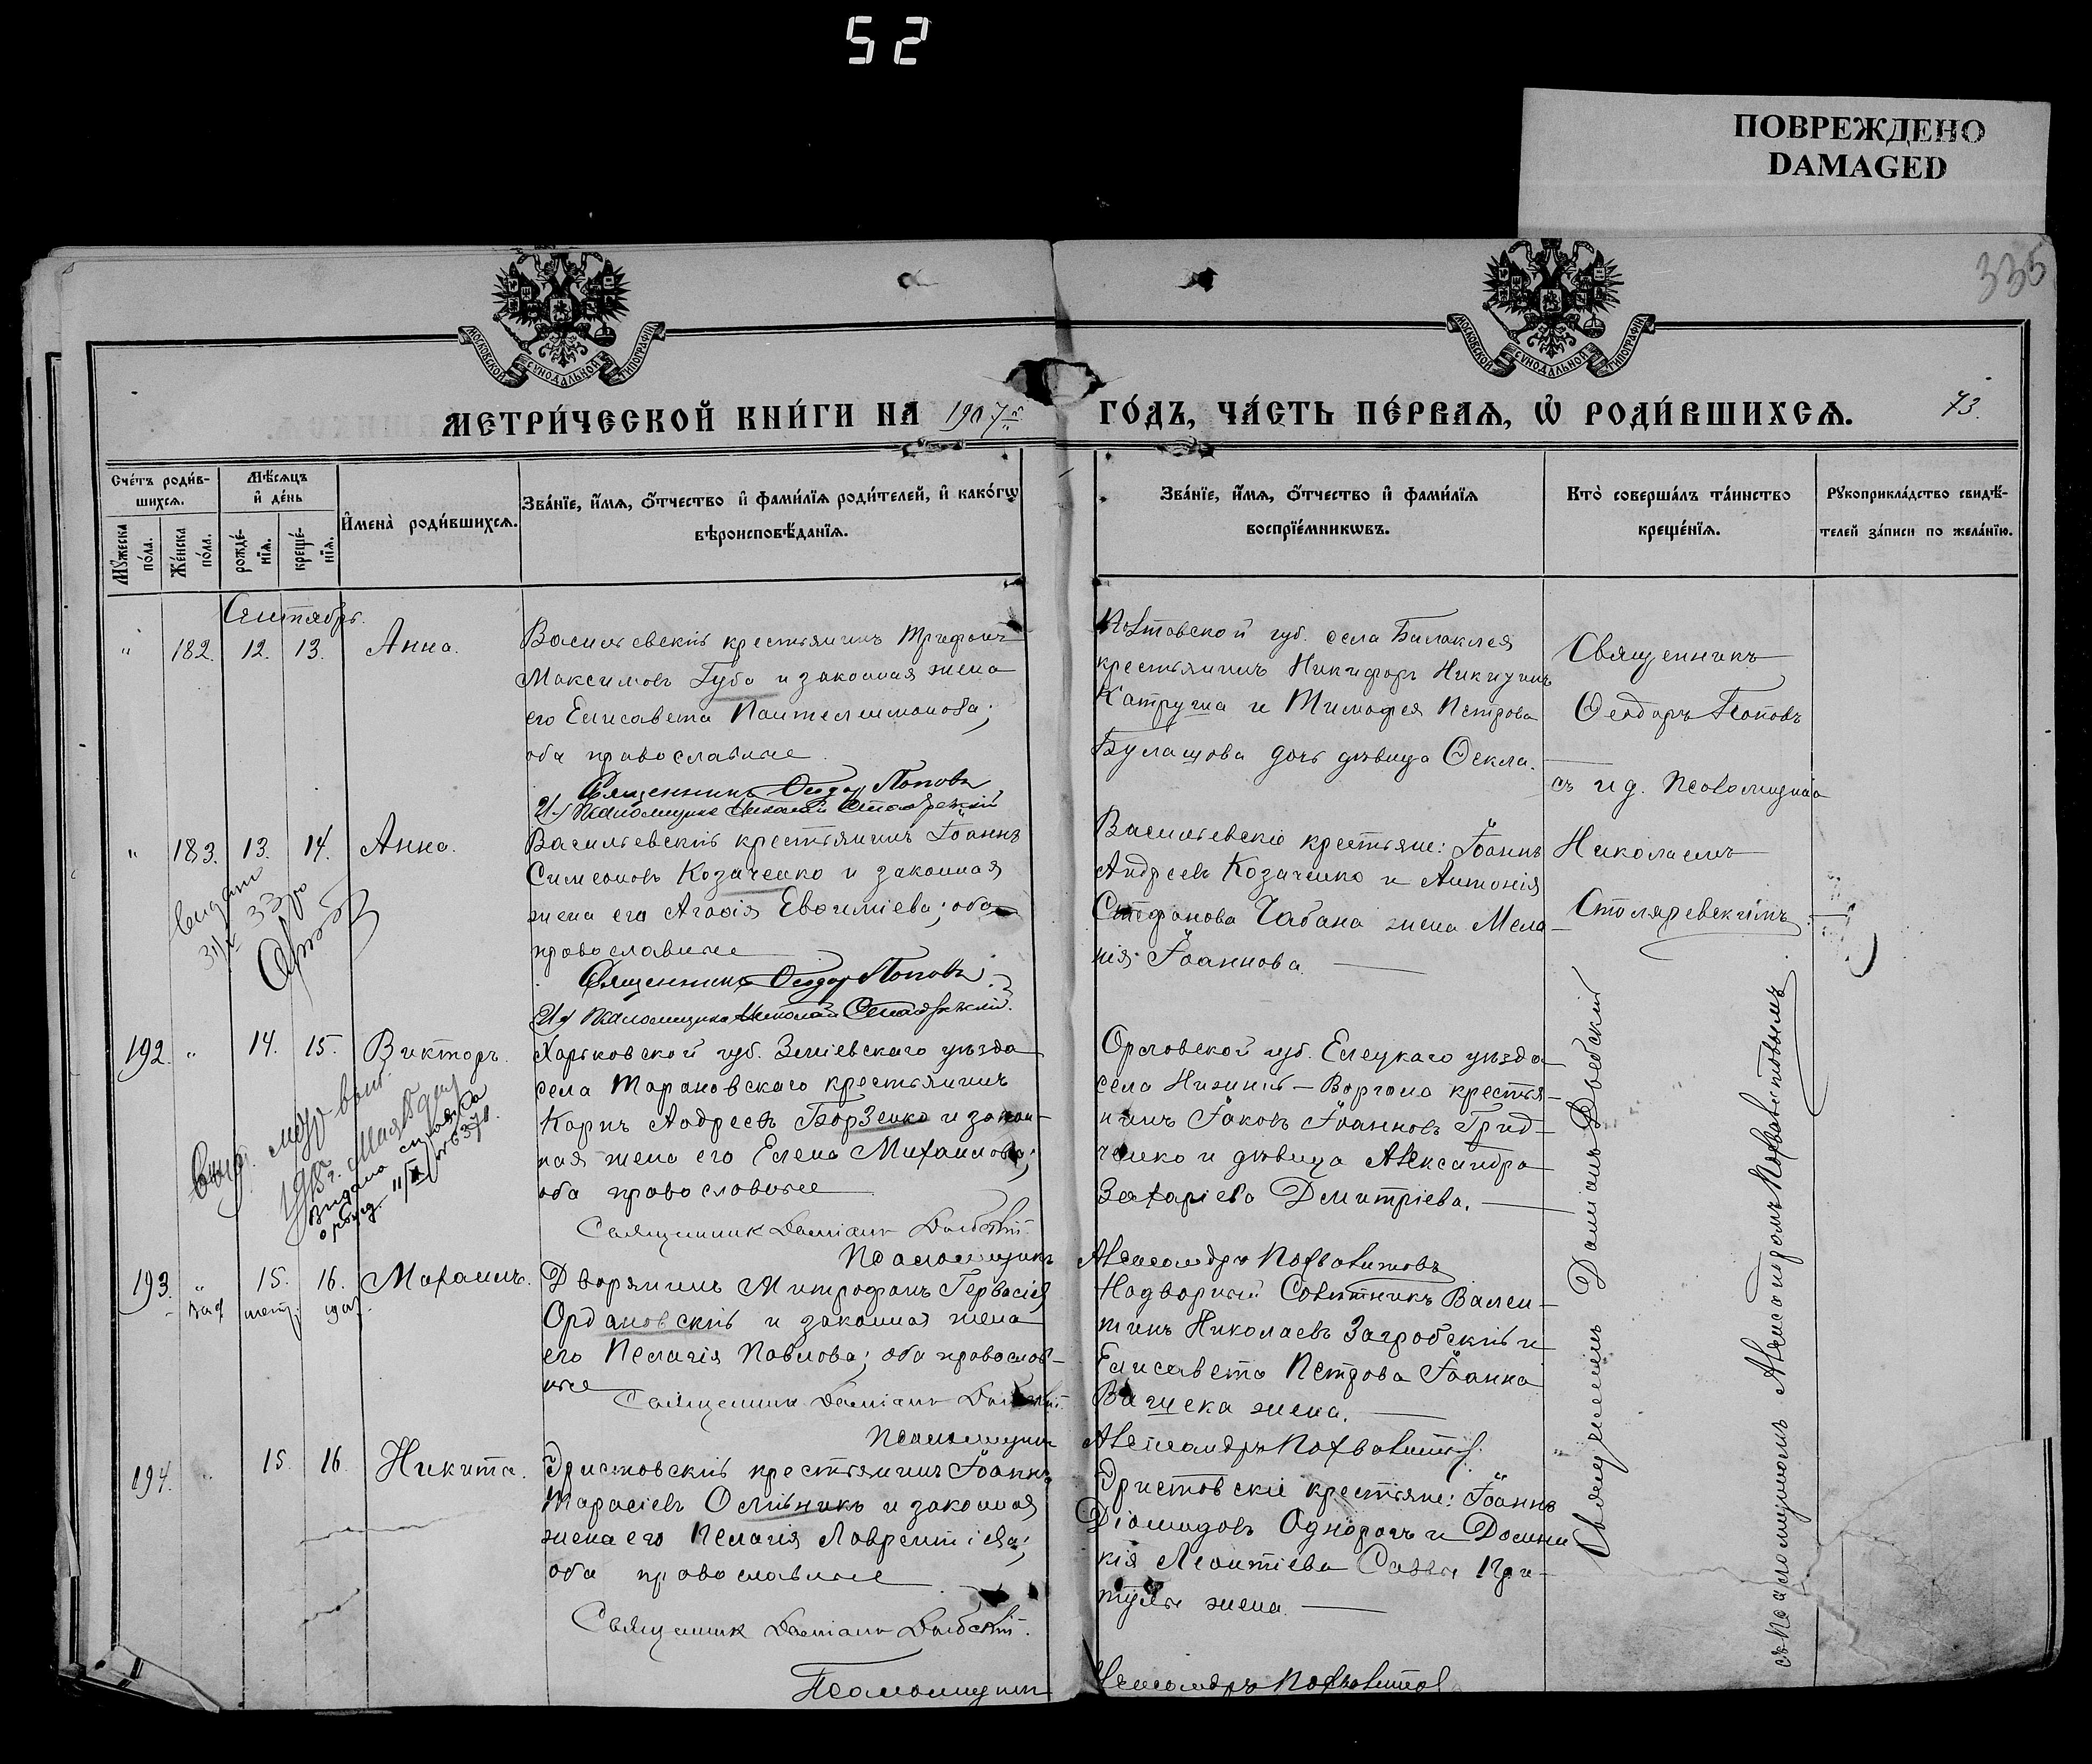 52
ПОВРЕЖДЕНО
DAMAGED
335
МОСКОВСКОЙ СУНОДАЛЬНОЙ ТИПОГРАФІИ
МОСКОВСКОЙ СУНОДАЛЬНОЙ ТИПОГРАФІИ
МЕТРИ́ЧЕСКОЙ КНИ́ГИ НА 1907й ГО́ДЪ, ЧА́СТЬ ПЕ́РВАѦ, Ѡ РОДИ́ВШИХСѦ.
73.
Сче́тъ роди́в-
шихсѧ.
Мѣ́сѧцъ
и҆ де́нь
Мꙋ́жеска
по́ла.
Же́нска
по́ла.
рожде́-
нїѧ.
креще́-
нїѧ.
И҆мена̀ роди́вшихсѧ.
Зва́нїе, и҆́мѧ, ѻ҆́тчество и҆ фами́лїѧ роди́телей, и҆ како́гѡ
вѣроисповѣ́данїѧ.
Зва́нїе, и҆́мѧ, ѻ҆́тчество и҆ фами́лїѧ
воспрїе́мникѡвъ.
Кто̀ соверша́лъ та́инство
креще́нїѧ.
Рꙋкоприкла́дство свидѣ́-
телей за́писи по жела́нїю.
Сентябрь.
" 182. 12. 13. Анна.
Васильевскій крестьянинъ Трифонъ
Максимовъ Губа и законная жена
его Елисавета Пантелеимонова;
оба православные
Священникъ Феодоръ Поповъ
И. д. Псаломщика Николай Столяревскій
Полтавской губ. села Балаклея
крестьянинъ Никифоръ Никитинъ
Катруша и Тимофея Петрова
Булащова дочь дѣвица Ѳекла.
Священникъ
Ѳеодоръ Поповъ
съ и д. Псаломщика
Николаемъ
Столяревскимъ.
" 183. 13. 14. Анна.
Васильевскій крестьянинъ Іоаннъ
Симеоновъ Козаченко и законная
жена его Агафія Евфиміева; оба
православные
Священникъ Феодоръ Поповъ
И. д. Псаломщика Николай Столяревскій.
Васильевскіе крестьяне: Іоаннъ
Андреевъ Козаченко и Антонія
Стефанова Чабана жена Мела-
нія Іоаннова.
192. " 14. 15. Викторъ.
Харьковской губ. Зміевскаго уѣзда
села Тарановскаго крестьянинъ
Карпъ Андреевъ Борзенко и закон-
ная жена его Елена Михаилова;
оба православные
Священник Даміанъ Долбскій.
Псаломщикъ Александръ Похвалитовъ
Орловской губ. Елецкаго уѣзда
села Нижній-Воргола крестья-
нинъ Іаковъ Іоанновъ Грид-
ченко и дѣвица Александра
Захаріева Димитріева.
выдана справка
193. " 15. 16. Михаилъ.
Дворянинъ Митрофанъ Гервасіев
Ордановскій и законная жена
его Пелагія Павлова; оба православ-
ные
Священник Даміанъ
Псаломщикъ Александръ Похвалитовъ
Надворный Совѣтникъ Вален-
тинъ Николаевъ Загробскій и
Елисавета Петрова Іоанна
Вашека жена.
194. " 15. 16. Никита.
Христовскій крестьянинъ Іоаннъ
Тарасіевъ Олійникъ и законная
жена его Пелагія Лаврентіева;
оба православные
Священник Даміанъ
Псаломщикъ Александръ Похвалитовъ
Христовскіе крестьяне: Іоаннъ
Діомидовъ Однорогъ и Домни-
кія Леонтіева Саввы
жена.
Священникъ Даміанъ
съ Псаломщикомъ Александромъ Похвалитовымъ